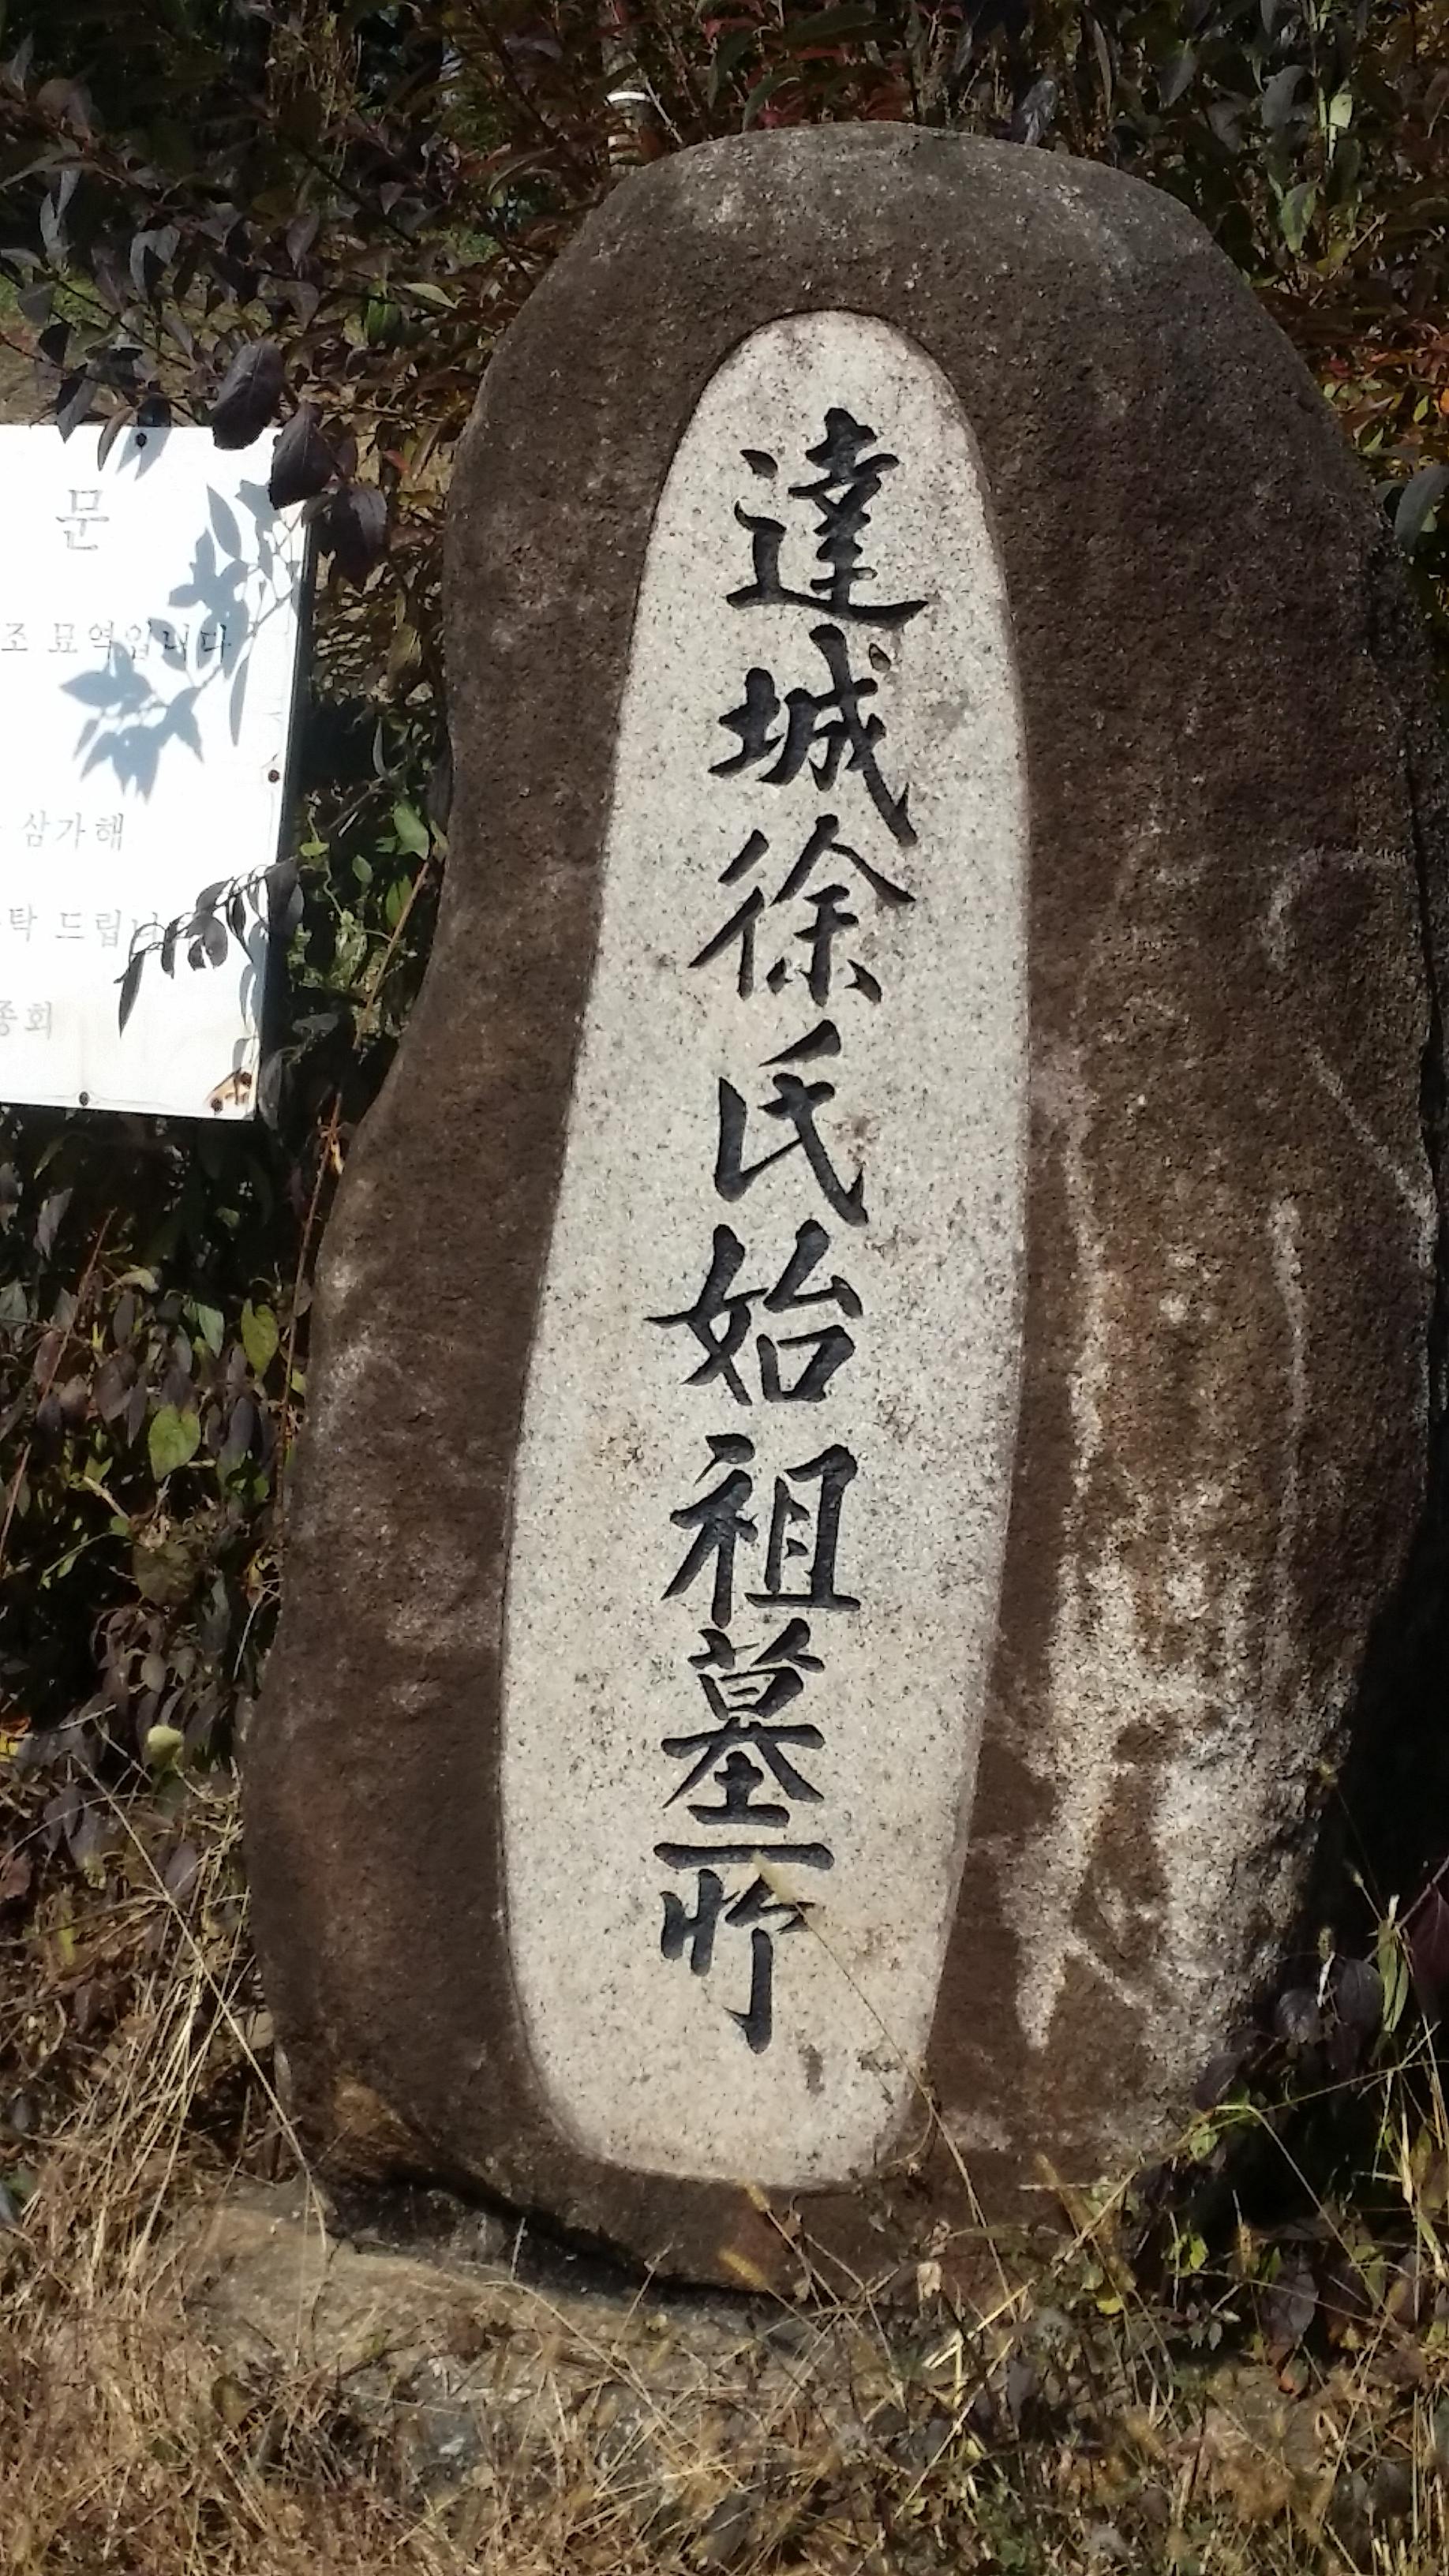 達城徐氏始祖墓所
문
조 묘역입니다
삼가해
탁 드립니
종회